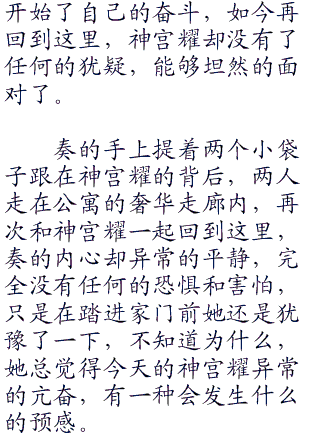 开始了自己的奋斗，如今再
回到这里，神宫耀却没有了
任何的犹疑，能够坦然的面
对了。
奏的手上提着两个小袋
子跟在神宫耀的背后，两人
走在公寓的奢华走廊内，再
次和神宫耀一起回到这里，
奏的内心却异常的平静，完
全没有任何的恐惧和害怕，
只是在踏进家门前她还是犹
豫了一下，不知道为什么，
她总觉得今天的神宫耀异常
的亢奋，有一种会发生什么
的预感。